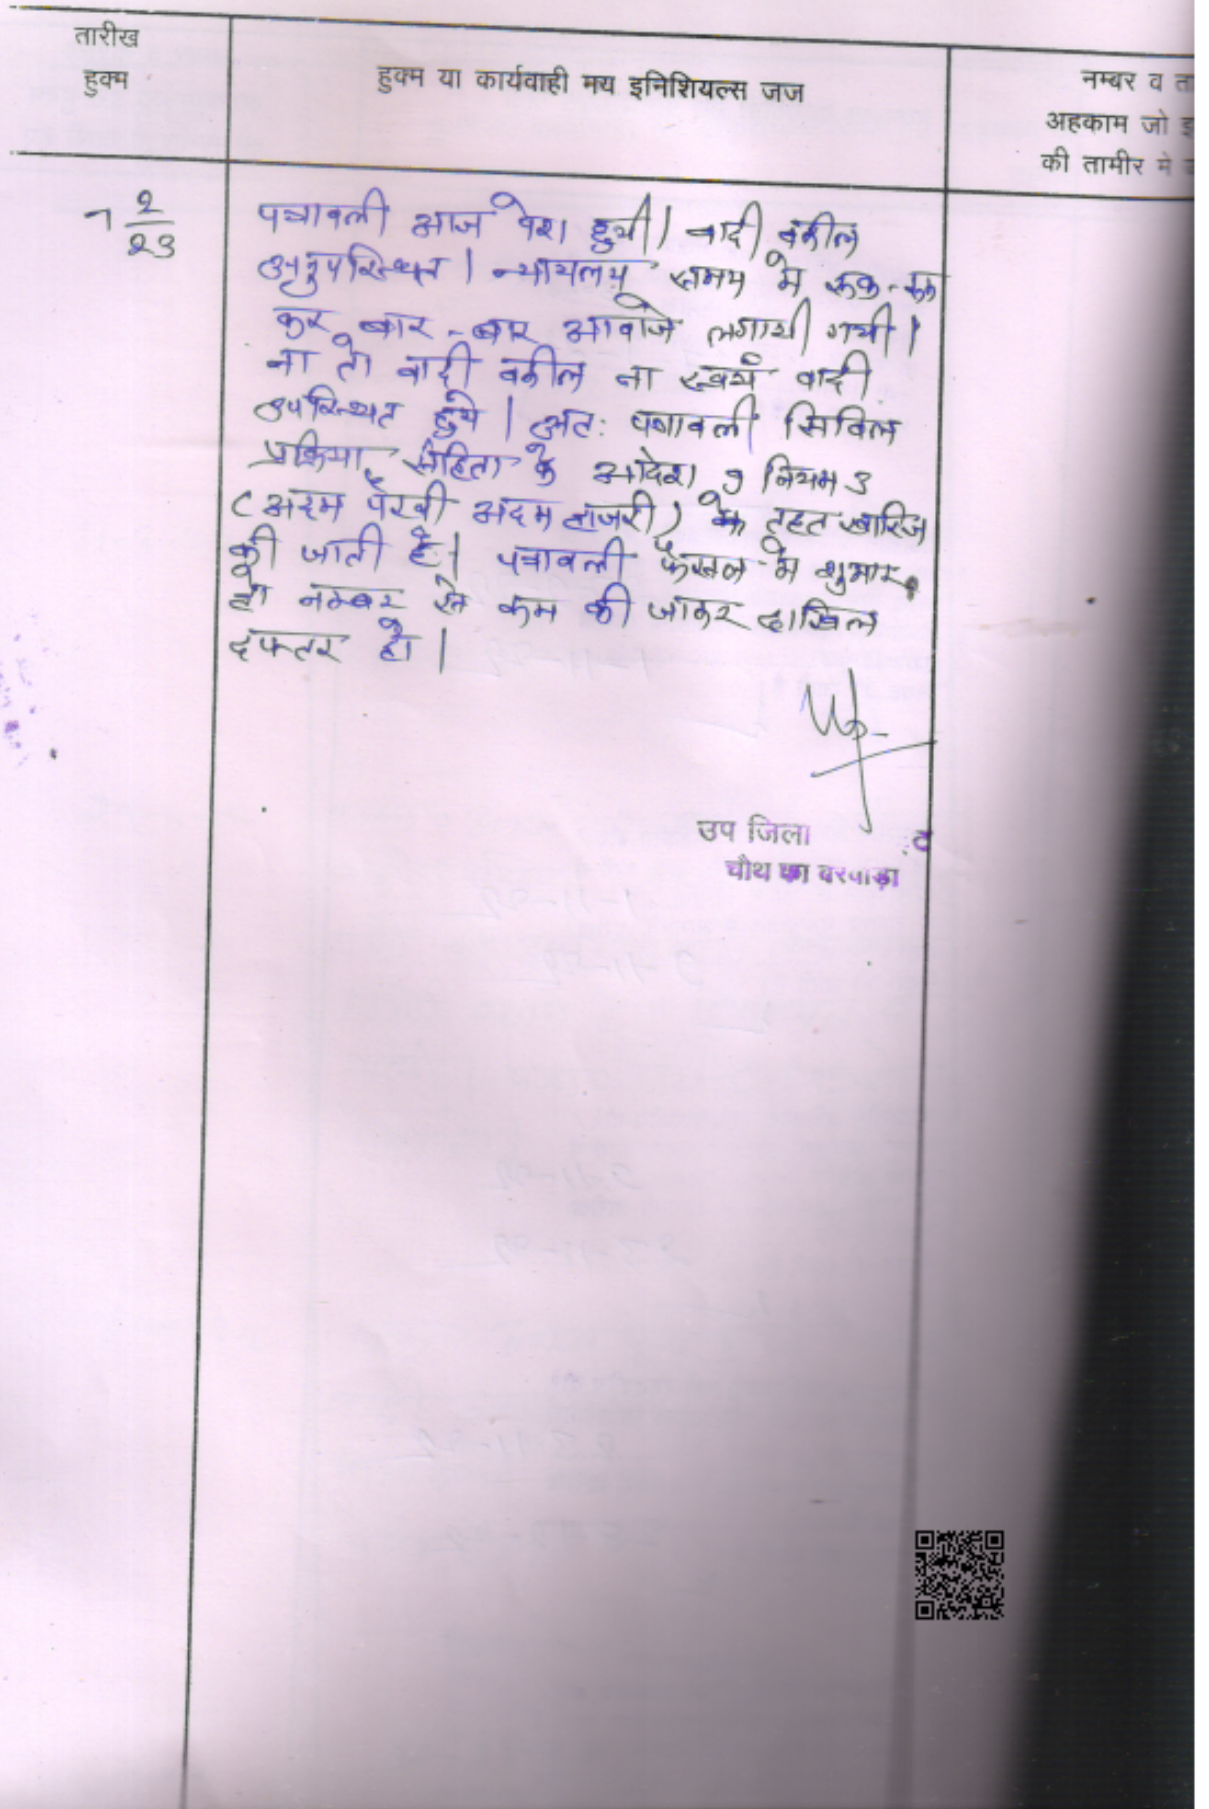 तारीख
हुक्म
हुक्म या कार्यवाही मय इनिशियल्स जज
नम्बर व ता
अहकाम जो इ
की तामीर मे
7 2/23
पत्रावली आज पेश हुयी। वादी वकील
अनुपस्थित। न्यायलय समय मे रूक-रूक
कर बार-बार आवाजे लगायी गयी।
ना तो वादी वकील ना स्वयं वादी
उपस्थित हुये। अतः पत्रावली सिविल
प्रक्रिया संहिता के आदेश 9 नियम 3
(अदम पैरवी अदम हाजरी) के तहत खारिज
की जाती है। पत्रावली फैसल मे शुमार
हो नम्बर से कम की जाकर दाखिल
दफ्तर हो।
उप जिला
चौथ का बरवाड़ा